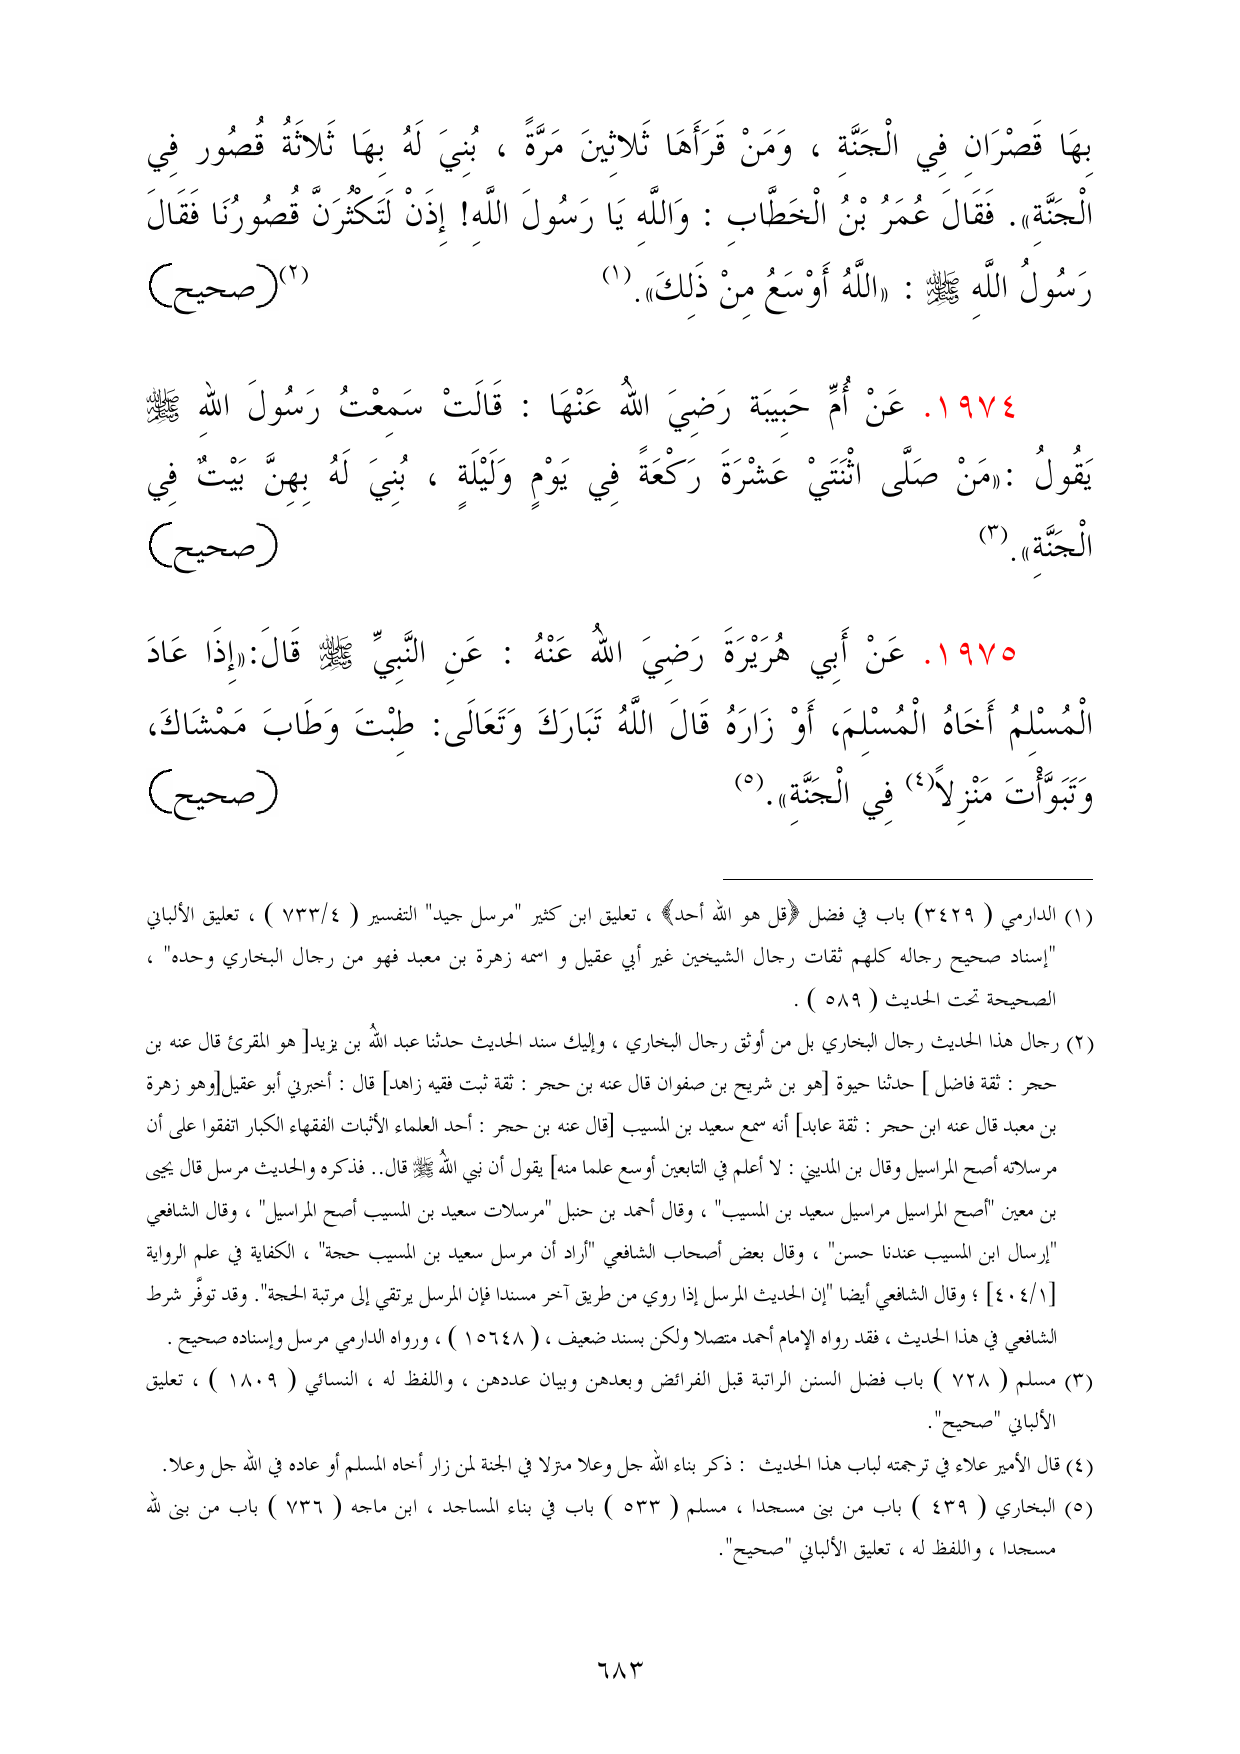 بِهَا قَصْرَانِ فِي الْجَنَّةِ ، وَمَنْ قَرَأَهَا ثَلاثِينَ مَرَّةً ، بُنِيَ لَهُ بِهَا ثَلاثَةُ قُصُور فِي
الْجَنَّةِ». فَقَالَ عُمَرُ بْنُ الْخَطَّابِ : وَاللَّهِ يَا رَسُولَ اللَّهِ! إِذَنْ لَتَكْثُرَنَّ قُصُورُنَا فَقَالَ
رَسُولُ اللَّهِ ﷺ : «اللَّهُ أَوْسَعُ مِنْ ذَلِكَ».(١) (٢)(صحيح)
١٩٧٤. عَنْ أُمِّ حَبِيبَة رَضِيَ اللهُ عَنْهَا : قَالَتْ سَمِعْتُ رَسُولَ اللهِ ﷺ
يَقُولُ :«مَنْ صَلَّى اثْنَتَيْ عَشْرَةَ رَكْعَةً فِي يَوْمٍ وَلَيْلَةٍ ، بُنِيَ لَهُ بِهِنَّ بَيْتٌ فِي
الْجَنَّةِ».(٣) (صحيح)
١٩٧٥. عَنْ أَبِي هُرَيْرَةَ رَضِيَ اللهُ عَنْهُ : عَنِ النَّبِيِّ ﷺ قَالَ:«إِذَا عَادَ
الْمُسْلِمُ أَخَاهُ الْمُسْلِمَ، أَوْ زَارَهُ قَالَ اللَّهُ تَبَارَكَ وَتَعَالَى: طِبْتَ وَطَابَ مَمْشَاكَ،
وَتَبَوَّأْتَ مَنْزِلاً(٤) فِي الْجَنَّةِ».(٥) (صحيح)
(١) الدارمي ( ٣٤٢٩) باب في فضل ﴿قل هو الله أحد﴾ ، تعليق ابن كثير "مرسل جيد" التفسير ( ٧٣٣/٤ ) ، تعليق الألباني
"إسناد صحيح رجاله كلهم ثقات رجال الشيخين غير أبي عقيل و اسمه زهرة بن معبد فهو من رجال البخاري وحده" ،
الصحيحة تحت الحديث ( ٥٨٩ ) .
(٢) رجال هذا الحديث رجال البخاري بل من أوثق رجال البخاري ، وإليك سند الحديث حدثنا عبد اللهُ بن يزيد[ هو المقرئ قال عنه بن
حجر : ثقة فاضل ] حدثنا حيوة [هو بن شريح بن صفوان قال عنه بن حجر : ثقة ثبت فقيه زاهد] قال : أخبرني أبو عقيل[وهو زهرة
بن معبد قال عنه ابن حجر : ثقة عابد] أنه سمع سعيد بن المسيب [قال عنه بن حجر : أحد العلماء الأثبات الفقهاء الكبار اتفقوا على أن
مرسلاته أصح المراسيل وقال بن المديني : لا أعلم في التابعين أوسع علما منه] يقول أن نبي اللهُ ﷺ قال.. فذكره والحديث مرسل قال يحيى
بن معين "أصح المراسيل مراسيل سعيد بن المسيب" ، وقال أحمد بن حنبل "مرسلات سعيد بن المسيب أصح المراسيل" ، وقال الشافعي
"إرسال ابن المسيب عندنا حسن" ، وقال بعض أصحاب الشافعي "أراد أن مرسل سعيد بن المسيب حجة" ، الكفاية في علم الرواية
[٤٠٤/١] ؛ وقال الشافعي أيضا "إن الحديث المرسل إذا روي من طريق آخر مسندا فإن المرسل يرتقي إلى مرتبة الحجة". وقد توفَّر شرط
الشافعي في هذا الحديث ، فقد رواه الإمام أحمد متصلا ولكن بسند ضعيف ، ( ١٥٦٤٨ ) ، ورواه الدارمي مرسل وإسناده صحيح .
(٣) مسلم ( ٧٢٨ ) باب فضل السنن الراتبة قبل الفرائض وبعدهن وبيان عددهن ، واللفظ له ، النسائي ( ١٨٠٩ ) ، تعليق
الألباني "صحيح".
(٤) قال الأمير علاء في ترجمته لباب هذا الحديث : ذكر بناء الله جل وعلا منزلا في الجنة لمن زار أخاه المسلم أو عاده في الله جل وعلا.
(٥) البخاري ( ٤٣٩ ) باب من بنى مسجدا ، مسلم ( ٥٣٣ ) باب في بناء المساجد ، ابن ماجه ( ٧٣٦ ) باب من بنى لله
مسجدا ، واللفظ له ، تعليق الألباني "صحيح".
٦٨٣